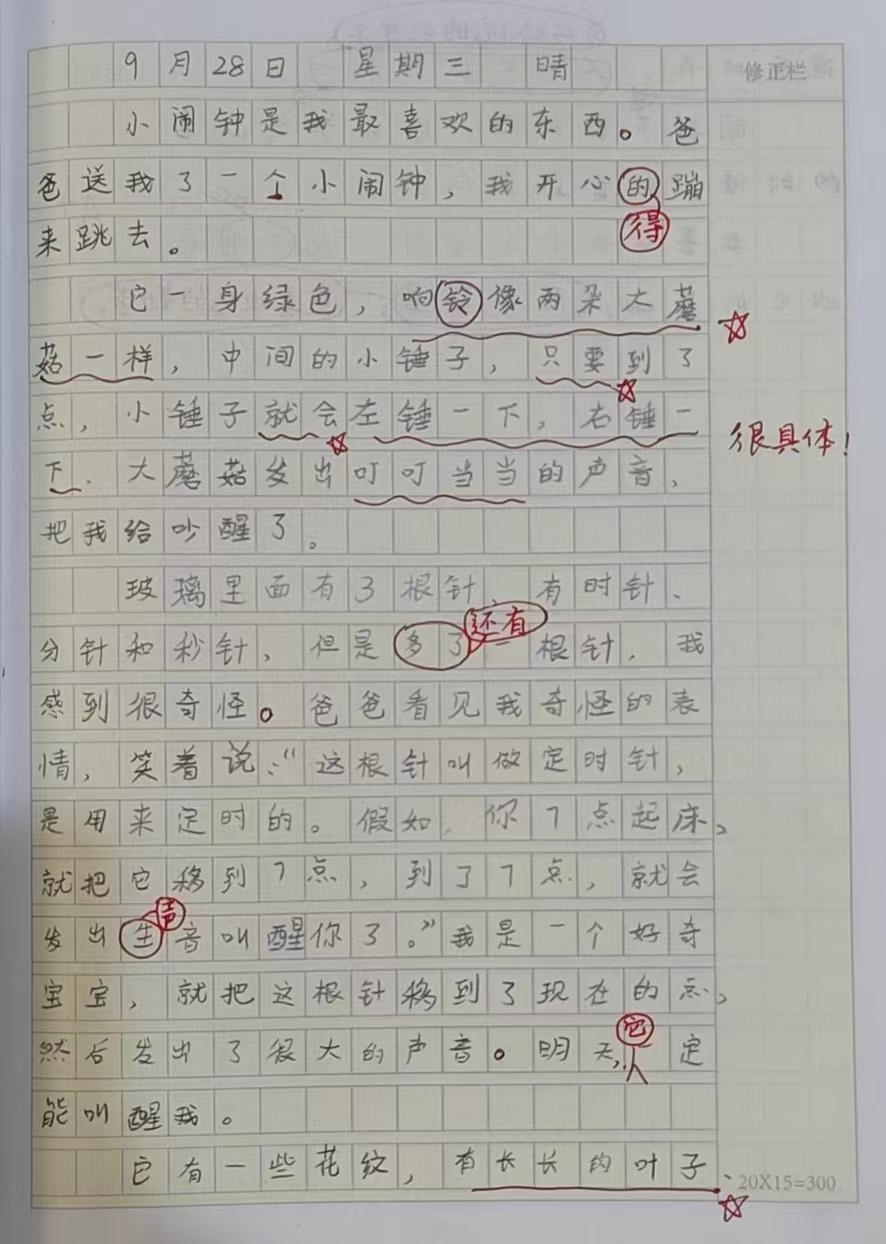 9月28日 星期三 晴
修正栏
小闹钟是我最喜欢的东西。爸
爸送我了一个小闹钟,我开心的蹦
得
来跳去。
它一身绿色,响铃像两朵大蘑
菇一样,中间的小锤子,只要到了
点,小锤子就会左锤一下,右锤一
很具体!
下.大蘑菇发出叮叮当当的声音,
把我给吵醒了。
玻璃里面有3根针 有时针、
还有
分针和秒针,但是多了一根针,我
感到很奇怪。爸爸看见我奇怪的表
情,笑着说:“这根针叫做定时针,
是用来定时的。假如,你7点起床,
就把它移到7点,到了7点,就会
声
发出生音叫醒你了。”我是一个好奇
宝宝,就把这根针移到了现在的点,
它
然后发出了很大的声音。明天,一定
能叫醒我。
它有一些花纹,有长长的叶子、
20X15=300